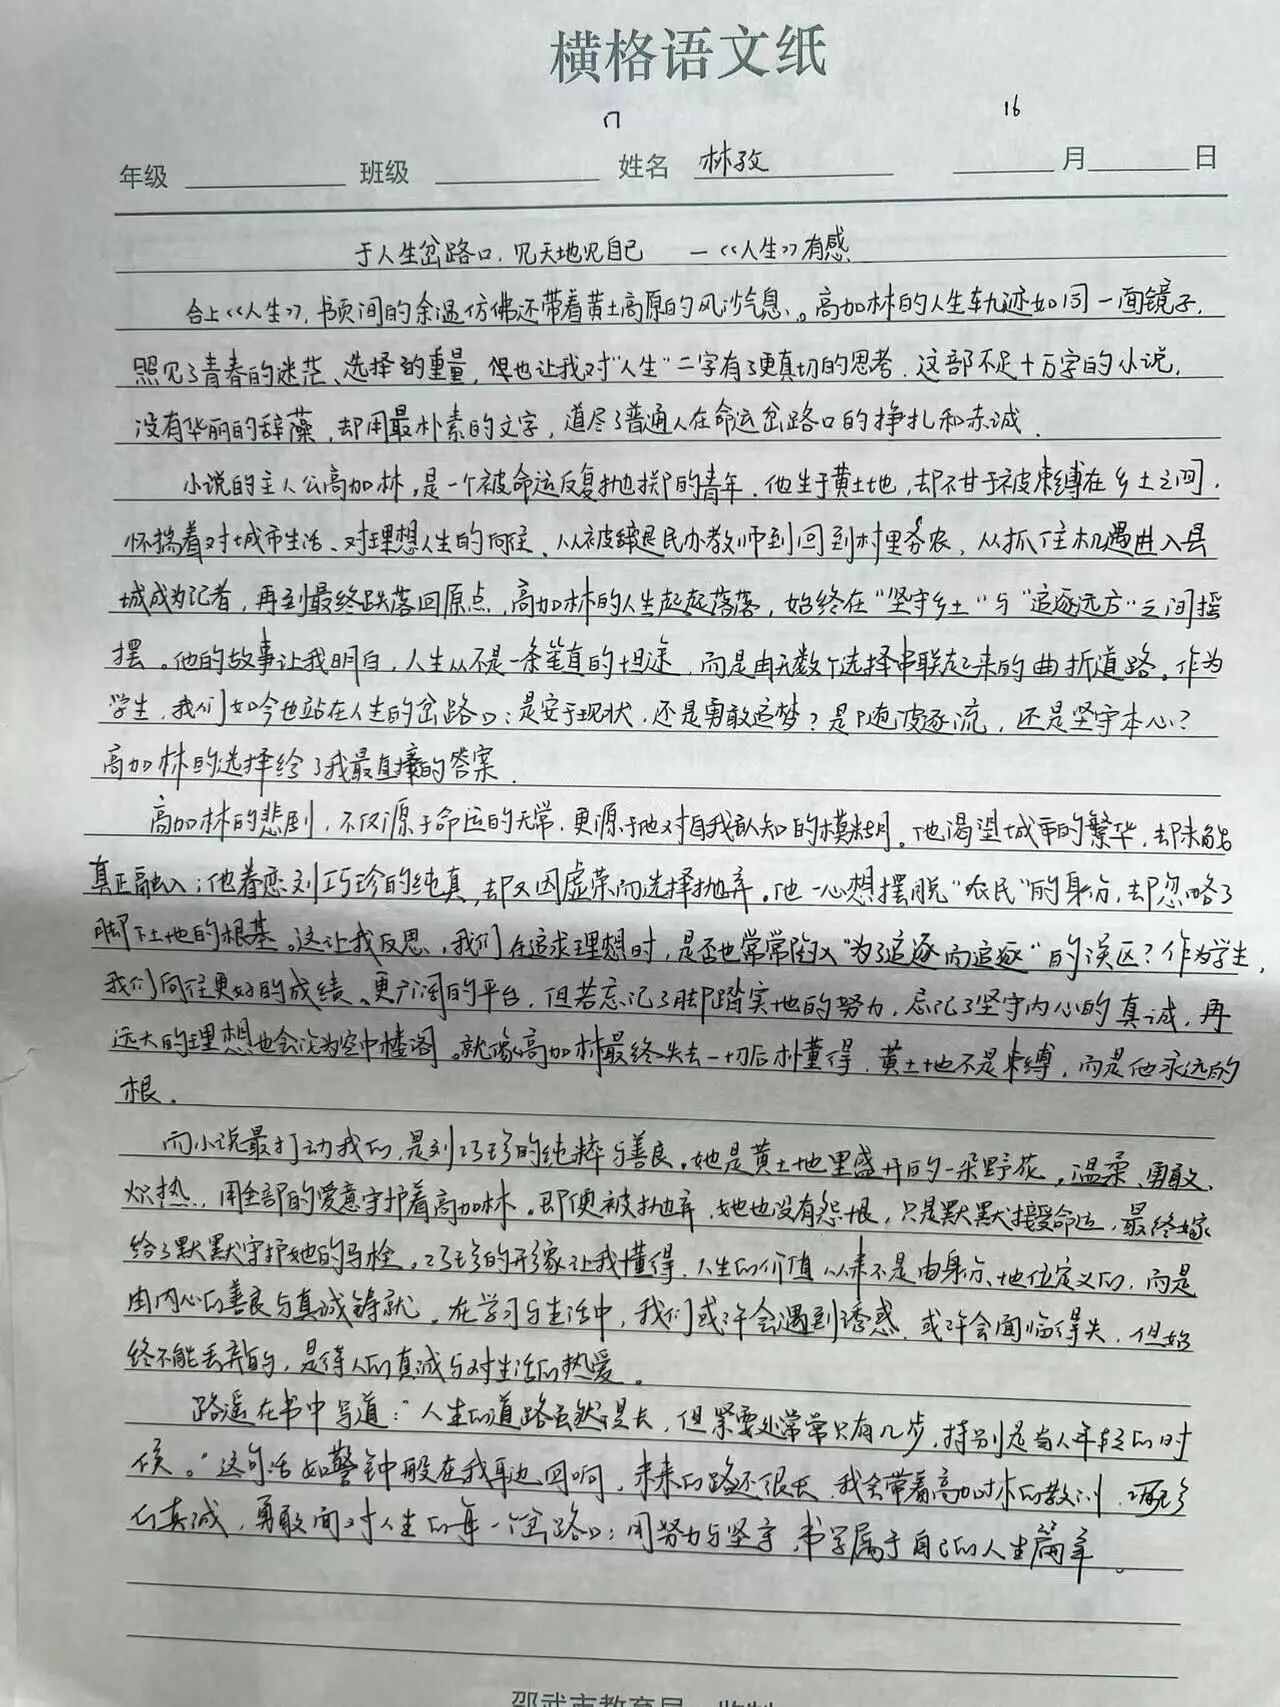 横格语文纸
17 16
年级 班级 姓名 林孜 月 日
于人生岔路口,见天地见自己 —《人生》有感
合上《人生》,书页间的余温仿佛还带着黄土高原的风沙气息、。高加林的人生轨迹如同一面镜子,
照见了青春的迷茫、选择的重量,但也让我对"人生"二字有了更真切的思考.这部不足十万字的小说,
没有华丽的辞藻,却用最朴素的文字,道尽了普通人在命运岔路口的挣扎和赤诚.
小说的主人公高加林,是一个被命运反复抛掷的青年.他生于黄土地,却不甘于被束缚在乡土之间,
怀揣着对城市生活、对理想人生的向往、从被辞退民办教师到回到村里务农,从抓住机遇进入县
城成为记者,再到最终跌落回原点,高加林的人生起起落落,始终在"坚守乡土"与"追逐远方"之间摇
摆。他的故事让我明白,人生从不是一条笔直的坦途,而是由无数个选择串联起来的曲折道路。作为
学生,我们如今也站在人生的岔路口:是安于现状,还是勇敢追梦?是随波逐流,还是坚守本心?
高加林的选择给了我最直接的答案.
高加林的悲剧,不仅源于命运的无常,更源于他对自我认知的模糊。他渴望城市的繁华,却未能
真正融入;他眷恋刘巧珍的纯真,却又因虚荣而选择抛弃。他一心想摆脱"农民"的身份,却忽略了
脚下土地的根基。这让我反思,我们在追求理想时,是否也常常陷入"为了追逐而追逐"的误区?作为学生,
我们向往更好的成绩、更广阔的平台,但若忘记了脚踏实地的努力,忘记了坚守内心的真诚,再
远大的理想也会沦为空中楼阁。就像高加林最终失去一切后才懂得,黄土地不是束缚,而是他永远的
根.
而小说最打动我的,是刘巧珍的纯粹与善良。她是黄土地里盛开的一朵野花。温柔、勇敢、
炽热,用全部的爱意守护着高加林。即便被抛弃,她也没有怨恨,只是默默接受命运,最终嫁
给了默默守护她的马栓。巧珍的形象让我懂得,人生的价值从来不是由身份、地位定义的,而是
由内心的善良与真诚铸就。在学习与生活中,我们或许会遇到诱惑,或许会面临得失,但始
终不能丢弃的,是待人的真诚与对生活的热爱。
路遥在书中写道:"人生的道路虽然漫长,但紧要处常常只有几步,特别是当人年轻的时
候。"这句话如警钟般在我耳边回响,未来的路还很长,我会带着高加林的教训,巧珍
的真诚,勇敢面对人生的每一个岔路口;用努力与坚守,书写属于自己的人生篇章。
邵武市教育局 监制